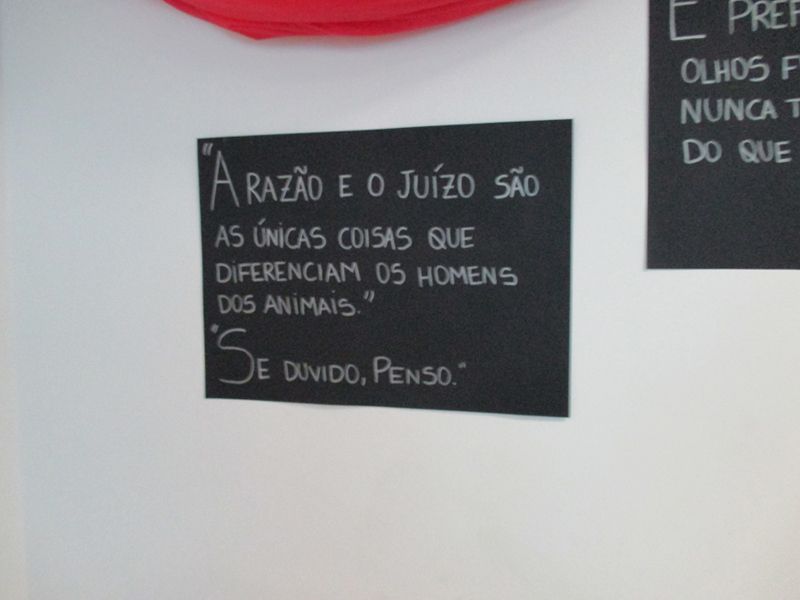 "A RAZÃO E O JUÍZO SÃO
AS ÚNICAS COISAS QUE
DIFERENCIAM OS HOMENS
DOS ANIMAIS."
"SE DUVIDO, PENSO."
É
OLHOS
NUNCA
DO QUE